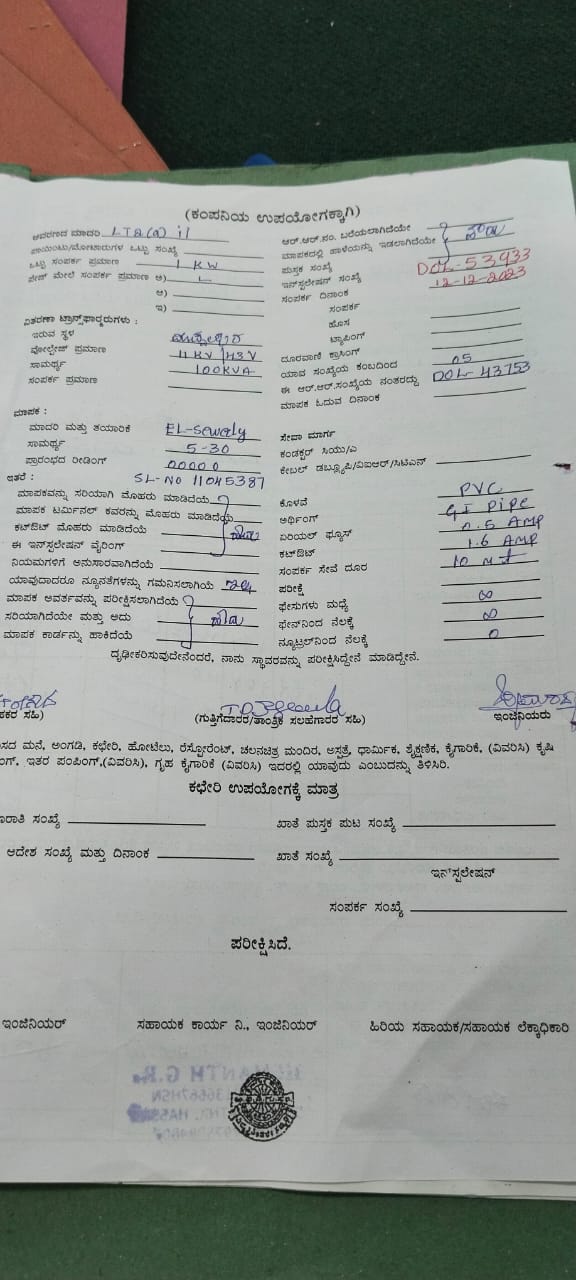 (ಕಂಪನಿಯ ಉಪಯೋಗಕ್ಕಾಗಿ)
ಆವರಣದ ಮಾದರಿ LT2(a) il
ಪಾಯಿಂಟು/ಮೋಟಾರುಗಳ ಒಟ್ಟು ಸಂಖ್ಯೆ
ಒಟ್ಟು ಸಂಪರ್ಕ ಪ್ರಮಾಣ 1 KW
ಮೇಲೆ ಸಂಪರ್ಕ ಪ್ರಮಾಣ ಅ)
ಆ)
ಇ)
ವಿತರಣಾ ಟ್ರಾನ್ಸ್‌ಫಾರ್ಮರುಗಳು :
ಇರುವ ಸ್ಥಳ
ವೋಲ್ಟೇಜ್ ಪ್ರಮಾಣ 11 KV
ಸಾಮರ್ಥ್ಯ 100KVA
ಸಂಪರ್ಕ ಪ್ರಮಾಣ
ಆರ್.ಆರ್.ನಂ. ಬರೆಯಲಾಗಿದೆಯೇ
ಮಾಪಕದಲ್ಲಿ ಹಾಳೆಯನ್ನು ಇಡಲಾಗಿದೆಯೇ ಹೌದು
ಪುಸ್ತಕ ಸಂಖ್ಯೆ
ಇನ್‌ಸ್ಟಲೇಷನ್ ಸಂಖ್ಯೆ DOL-53933
ಸಂಪರ್ಕ ದಿನಾಂಕ 12-12-2023
ಸಂಪರ್ಕ
ಹೊಸ
ಟ್ಯಾಪಿಂಗ್
ದೂರವಾಣಿ ಕ್ರಾಸಿಂಗ್
ಯಾವ ಸಂಖ್ಯೆಯ ಕಂಬದಿಂದ 05
ಈ ಆರ್.ಆರ್.ಸಂಖ್ಯೆಯ ನಂತರದ್ದು DOL-43753
ಮಾಪಕ ಓದುವ ದಿನಾಂಕ
ಮಾಪಕ :
ಮಾದರಿ ಮತ್ತು ತಯಾರಿಕೆ
ಸಾಮರ್ಥ್ಯ 5-30
ಪ್ರಾರಂಭದ ರೀಡಿಂಗ್ 00000
ಇತರೆ : SL-NO 11045387
ಮಾಪಕವನ್ನು ಸರಿಯಾಗಿ ಮೊಹರು ಮಾಡಿದೆಯೆ
ಮಾಪಕ ಟರ್ಮಿನಲ್ ಕವರನ್ನು ಮೊಹರು ಮಾಡಿದೆಯೆ
ಕಟ್‌ಔಟ್ ಮೊಹರು ಮಾಡಿದೆಯೆ ಹೌದು
ಈ ಇನ್‌ಸ್ಟಲೇಷನ್ ವೈರಿಂಗ್
ನಿಯಮಗಳಿಗೆ ಅನುಸಾರವಾಗಿದೆಯೆ
ಯಾವುದಾದರೂ ನ್ಯೂನತೆಗಳನ್ನು ಗಮನಿಸಲಾಗಿಯೆ ಇಲ್ಲ
ಮಾಪಕ ಆವರ್ತವನ್ನು ಪರೀಕ್ಷಿಸಲಾಗಿದೆಯೆ
ಸರಿಯಾಗಿದೆಯೇ ಮತ್ತು ಅದು ಹೌದು
ಮಾಪಕ ಕಾರ್ಡನ್ನು ಹಾಕಿದೆಯೆ
ಸೇವಾ ಮಾರ್ಗ
ಕಂಡಕ್ಟರ್ ಸಿಯು/ಎ
ಕೇಬಲ್ ಡಬ್ಲ್ಯೂಪಿ/ವಿಐಆರ್/ಸಿಟಿಎಸ್
ಕೊಳವೆ PVC
ಅರ್ಥಿಂಗ್ GI Pipe
ಏರಿಯಲ್ ಫ್ಯೂಸ್ 0.5 AMP
ಕಟ್‌ಔಟ್ 1.6 AMP
ಸಂಪರ್ಕ ಸೇವೆ ದೂರ 10 mt
ಪರೀಕ್ಷೆ
ಫೇಸುಗಳು ಮಧ್ಯೆ ∞
ಫೇಸ್‌ನಿಂದ ನೆಲಕ್ಕೆ ∞
ನ್ಯೂಟ್ರಲ್‌ನಿಂದ ನೆಲಕ್ಕೆ 0
ದೃಢೀಕರಿಸುವುದೇನೆಂದರೆ, ನಾನು ಸ್ಥಾವರವನ್ನು ಪರೀಕ್ಷಿಸಿದ್ದೇನೆ ಮಾಡಿದ್ದೇನೆ.
ಹಕರ ಸಹಿ) (ಗುತ್ತಿಗೆದಾರರ/ತಾಂತ್ರಿಕ ಸಲಹೆಗಾರರ ಸಹಿ) ಇಂಜಿನಿಯರು
ಸದ ಮನೆ, ಅಂಗಡಿ, ಕಛೇರಿ, ಹೋಟೆಲು, ರೆಸ್ಟೋರೆಂಟ್, ಚಲನಚಿತ್ರ ಮಂದಿರ, ಅಸ್ಪತ್ರೆ, ಧಾರ್ಮಿಕ, ಶೈಕ್ಷಣಿಕ, ಕೈಗಾರಿಕೆ, (ವಿವರಿಸಿ) ಕೃಷಿ
ಂಗ್, ಇತರ ಪಂಪಿಂಗ್,(ವಿವರಿಸಿ), ಗೃಹ ಕೈಗಾರಿಕೆ (ವಿವರಿಸಿ) ಇದರಲ್ಲಿ ಯಾವುದು ಎಂಬುದನ್ನು ತಿಳಿಸಿರಿ.
ಕಛೇರಿ ಉಪಯೋಗಕ್ಕೆ ಮಾತ್ರ
ರಾತಿ ಸಂಖ್ಯೆ ಖಾತೆ ಪುಸ್ತಕ ಪುಟ ಸಂಖ್ಯೆ
ಆದೇಶ ಸಂಖ್ಯೆ ಮತ್ತು ದಿನಾಂಕ ಖಾತೆ ಸಂಖ್ಯೆ
ಇನ್‌ಸ್ಟಲೇಷನ್
ಸಂಪರ್ಕ ಸಂಖ್ಯೆ
ಪರೀಕ್ಷಿಸಿದೆ.
ಇಂಜಿನಿಯರ್ ಸಹಾಯಕ ಕಾರ್ಯ ನಿ., ಇಂಜಿನಿಯರ್ ಹಿರಿಯ ಸಹಾಯಕ/ಸಹಾಯಕ ಲೆಕ್ಕಾಧಿಕಾರಿ